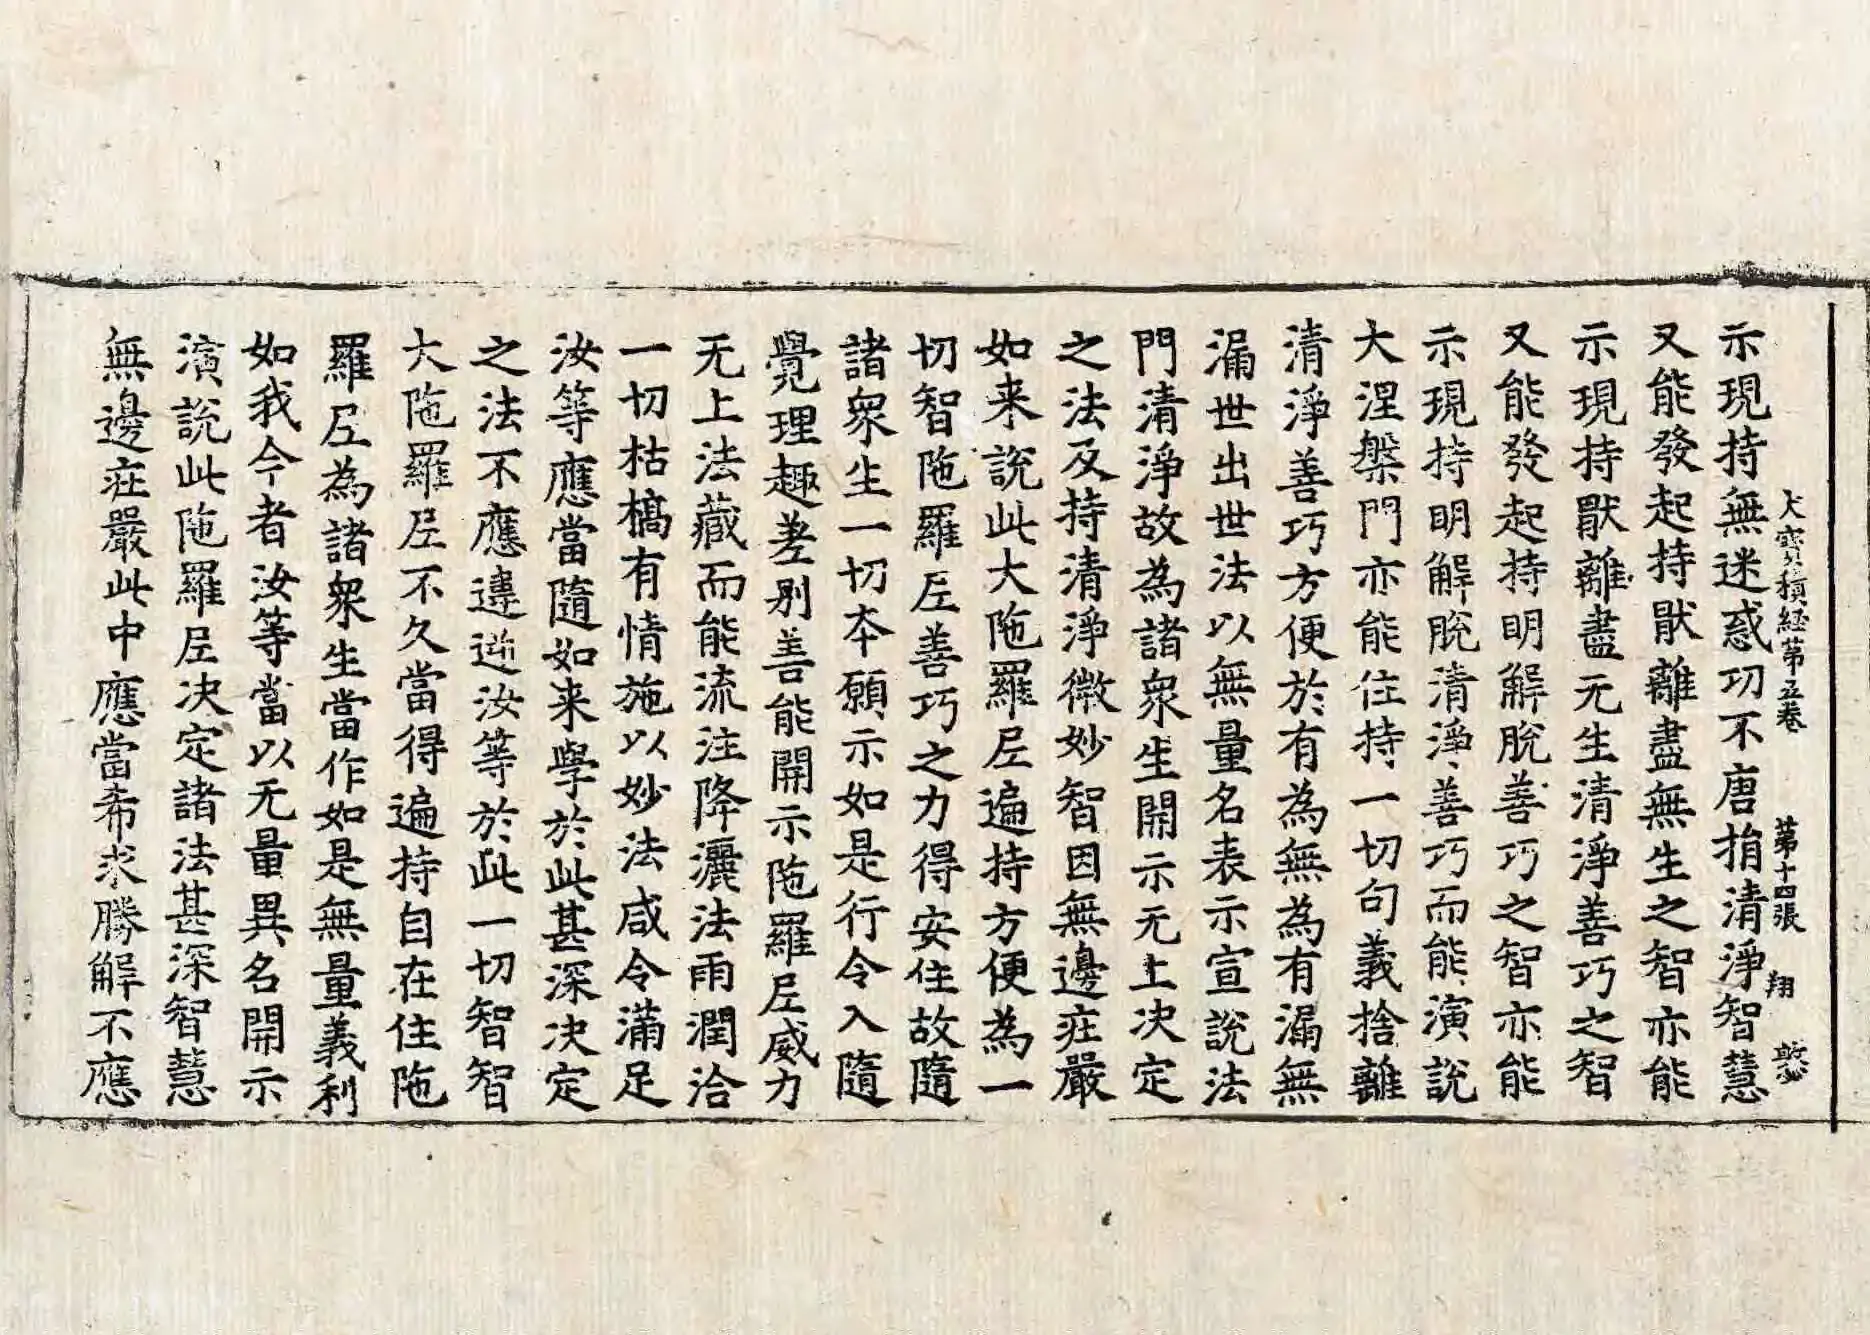 大寶積經第五卷 第十四張 翔
示現持無迷惑功不唐捐清淨智慧
又能發起持猒離盡無生之智亦能
示現持猒離盡无生清淨善巧之智
又能發起持明解脫善巧之智亦能
示現持明解脫清淨善巧而能演說
大涅槃門亦能住持一切句義捨離
清淨善巧方便於有為無為有漏無
漏世出世法以無量名表示宣說法
門清淨故為諸衆生開示无上決定
之法及持清淨微妙智因無邊庄嚴
如来說此大陁羅𡰱遍持方便為一
切智陁羅𡰱善巧之力得安住故隨
諸衆生一切本願示如是行令入隨
覺理趣差別善能開示陁羅𡰱威力
无上法藏而能流注降灑法雨潤洽
一切枯槁有情施以妙法咸令滿足
汝等應當隨如来學於此甚深決定
之法不應違逆汝等於此一切智智
大陁羅𡰱不久當得遍持自在住陁
羅𡰱為諸衆生當作如是無量義利
如我今者汝等當以无量異名開示
演說此陁羅𡰱決定諸法甚深智慧
無邊庄嚴此中應當希求勝解不應